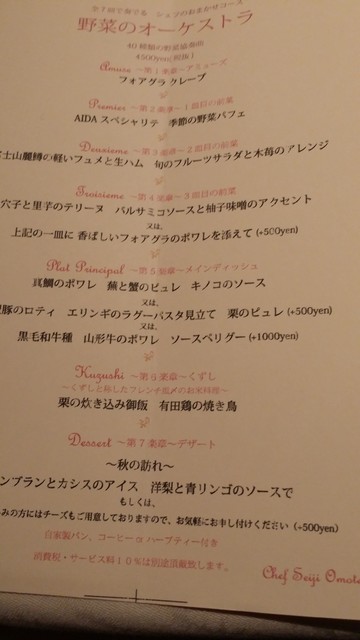 全7回で奏でる シェフのおまかせコース
野菜のオーケストラ
40種類の野菜協奏曲
4500yen(税抜)
Amuse 〜第1楽章〜アミューズ
フォアグラクレープ
Premier 〜第2楽章〜1皿目の前菜
AIDA スペシャリテ 季節の野菜パフェ
Deuxieme 〜第3楽章〜2皿目の前菜
士山麓鱒の軽いフュメと生ハム 旬のフルーツサラダと木苺のアレンジ
Troisieme 〜第4楽章〜3皿目の前菜
穴子と里芋のテリーヌ バルサミコソースと柚子味噌のアクセント
又は、
上記の一皿に 香ばしいフォアグラのポワレを添えて (+500yen)
Plat Principal 〜第5楽章〜メインディッシュ
真鯛のポワレ 蕪と蟹のピュレ キノコのソース
又は、
豚のロティ エリンギのラグーパスタ見立て 栗のピュレ (+500yen)
又は、
黒毛和牛種 山形牛のポワレ ソースペリグー (+1000yen)
Kuzushi 〜第6楽章〜くずし
〜くずしと称したフレンチ仕〆のお米料理〜
栗の炊き込み御飯 有田鶏の焼き鳥
Dessert 〜第7楽章〜デザート
〜秋の訪れ〜
ンブランとカシスのアイス 洋梨と青リンゴのソースで
もしくは、
みの方にはチーズもご用意しておりますので、お気軽にお申し付けください (+500yen)
自家製パン、コーヒー or ハーブティー付き
消費税・サービス料10%は別途頂戴致します。
Chef Seiji Omote